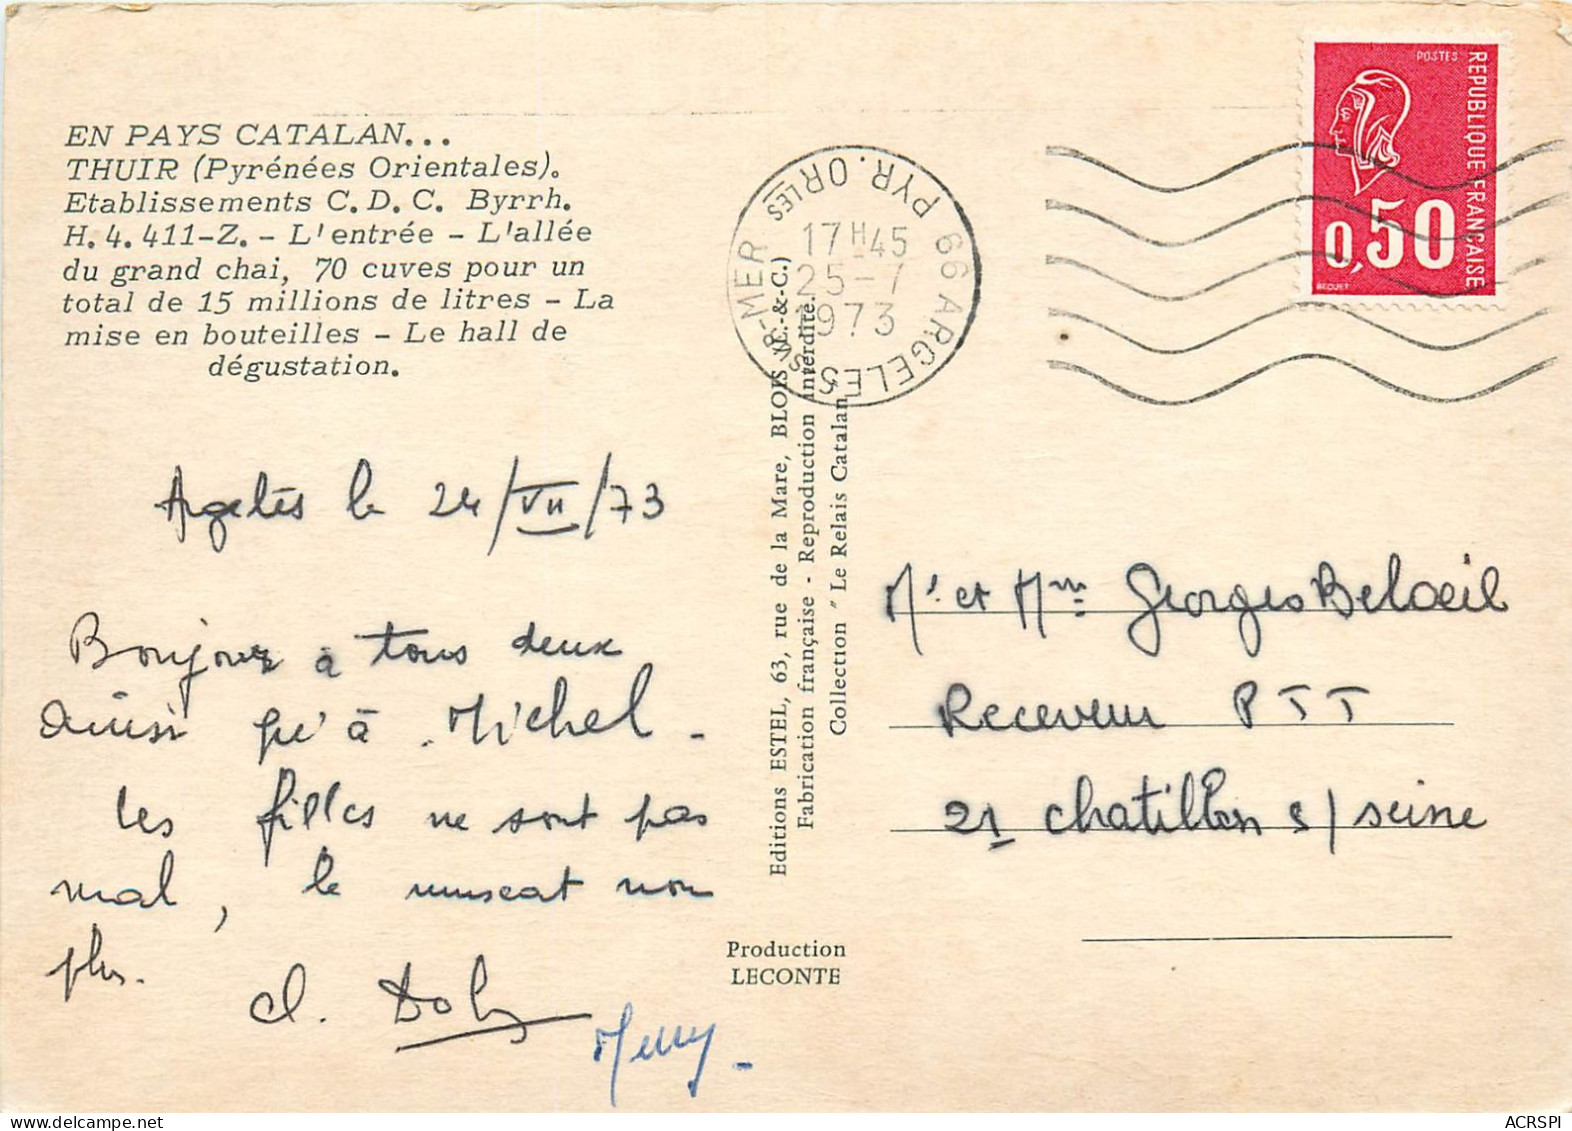 EN PAYS CATALAN...
THUIR (Pyrénées Orientales).
Etablissements C.D.C. Byrrh.
H.4.411-Z. - L'entrée - L'allée
du grand chai, 70 cuves pour un
total de 15 millions de litres - La
mise en bouteilles - Le hall de
dégustation.
Argelès le 24/VII/73
Bonjour à tous deux
ainsi qu'à Michel -
Les filles ne sont pas
mal, le muscat non
plus.
Cl.
Editions ESTEL, 63, rue de la Mare, BLOIS (L.-&-C.)
Fabrication française - Reproduction interdite.
Collection " Le Relais Catalan
Production
LECONTE
66 ARGELES-SUR-MER
PYR. ORLES
17H45
25-7
1973
POSTES
REPUBLIQUE FRANÇAISE
0,50
BEQUET
Mr et Mme Georges Beloeil
Receveur PTT
21 Chatillon s/seine
ACRSPI